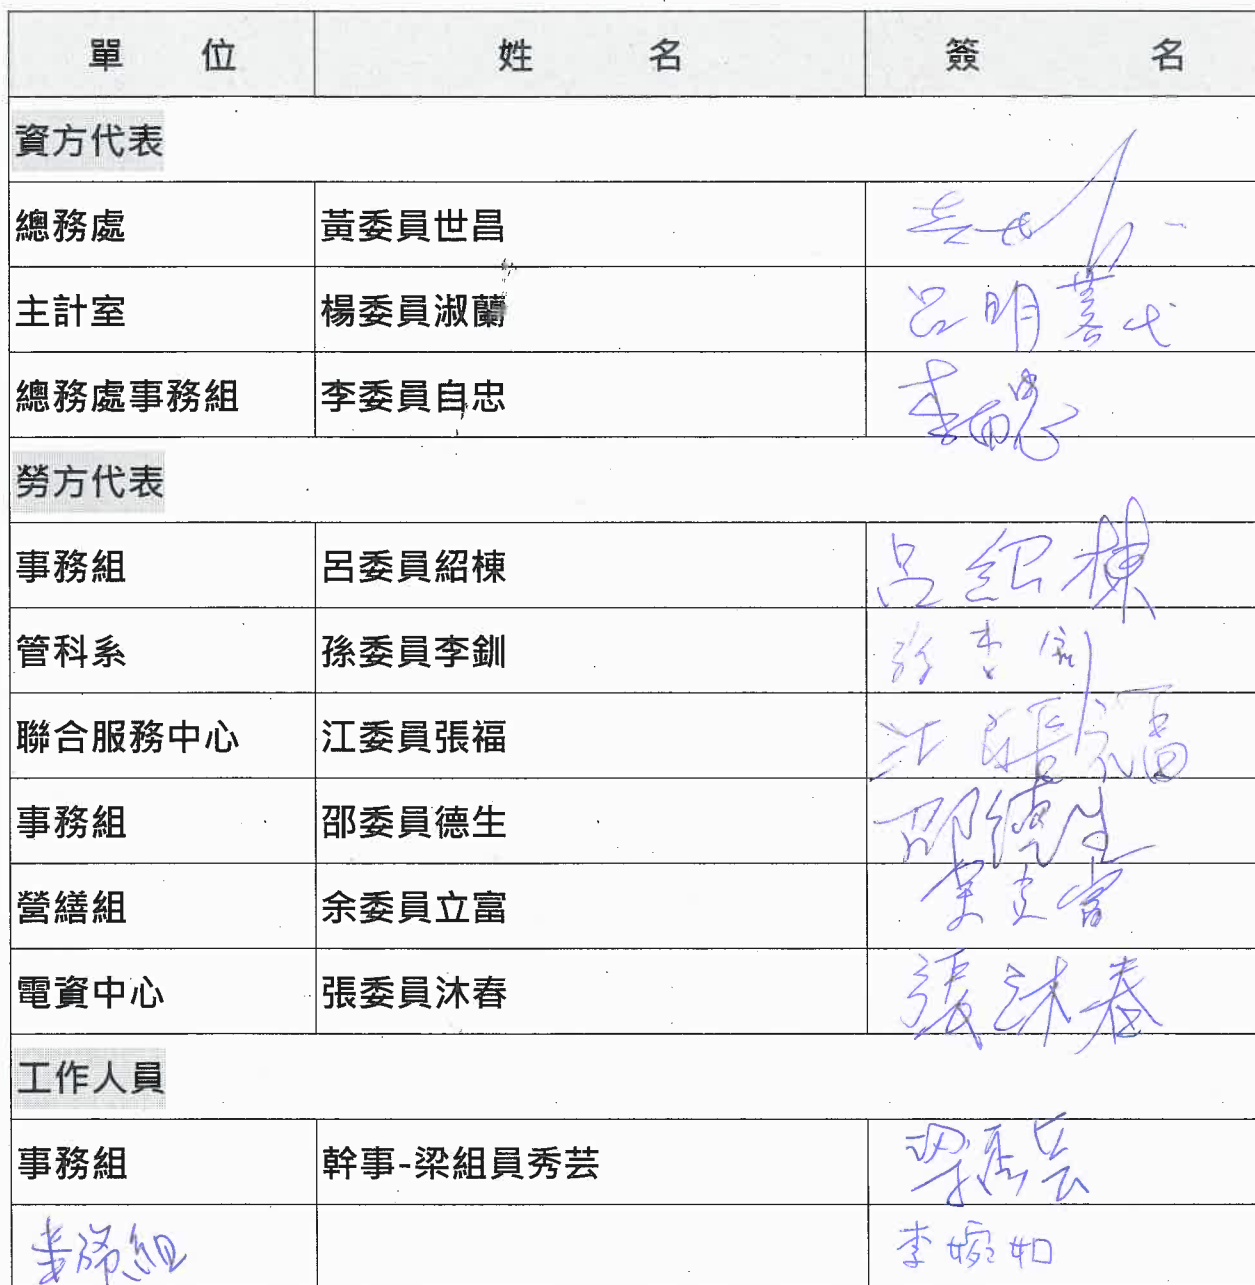 單 位 姓 名 簽 名
資方代表
總務處 黃委員世昌
主計室 楊委員淑蘭 呂明蓉代
總務處事務組 李委員自忠 李自忠
勞方代表
事務組 呂委員紹棟 呂紹棟
管科系 孫委員李釧 孫李釧
聯合服務中心 江委員張福 江張福
事務組 邵委員德生 邵德生
營繕組 余委員立富 余立富
電資中心 張委員沐春 張沐春
工作人員
事務組 幹事-梁組員秀芸 梁秀芸
事務組 李婉如